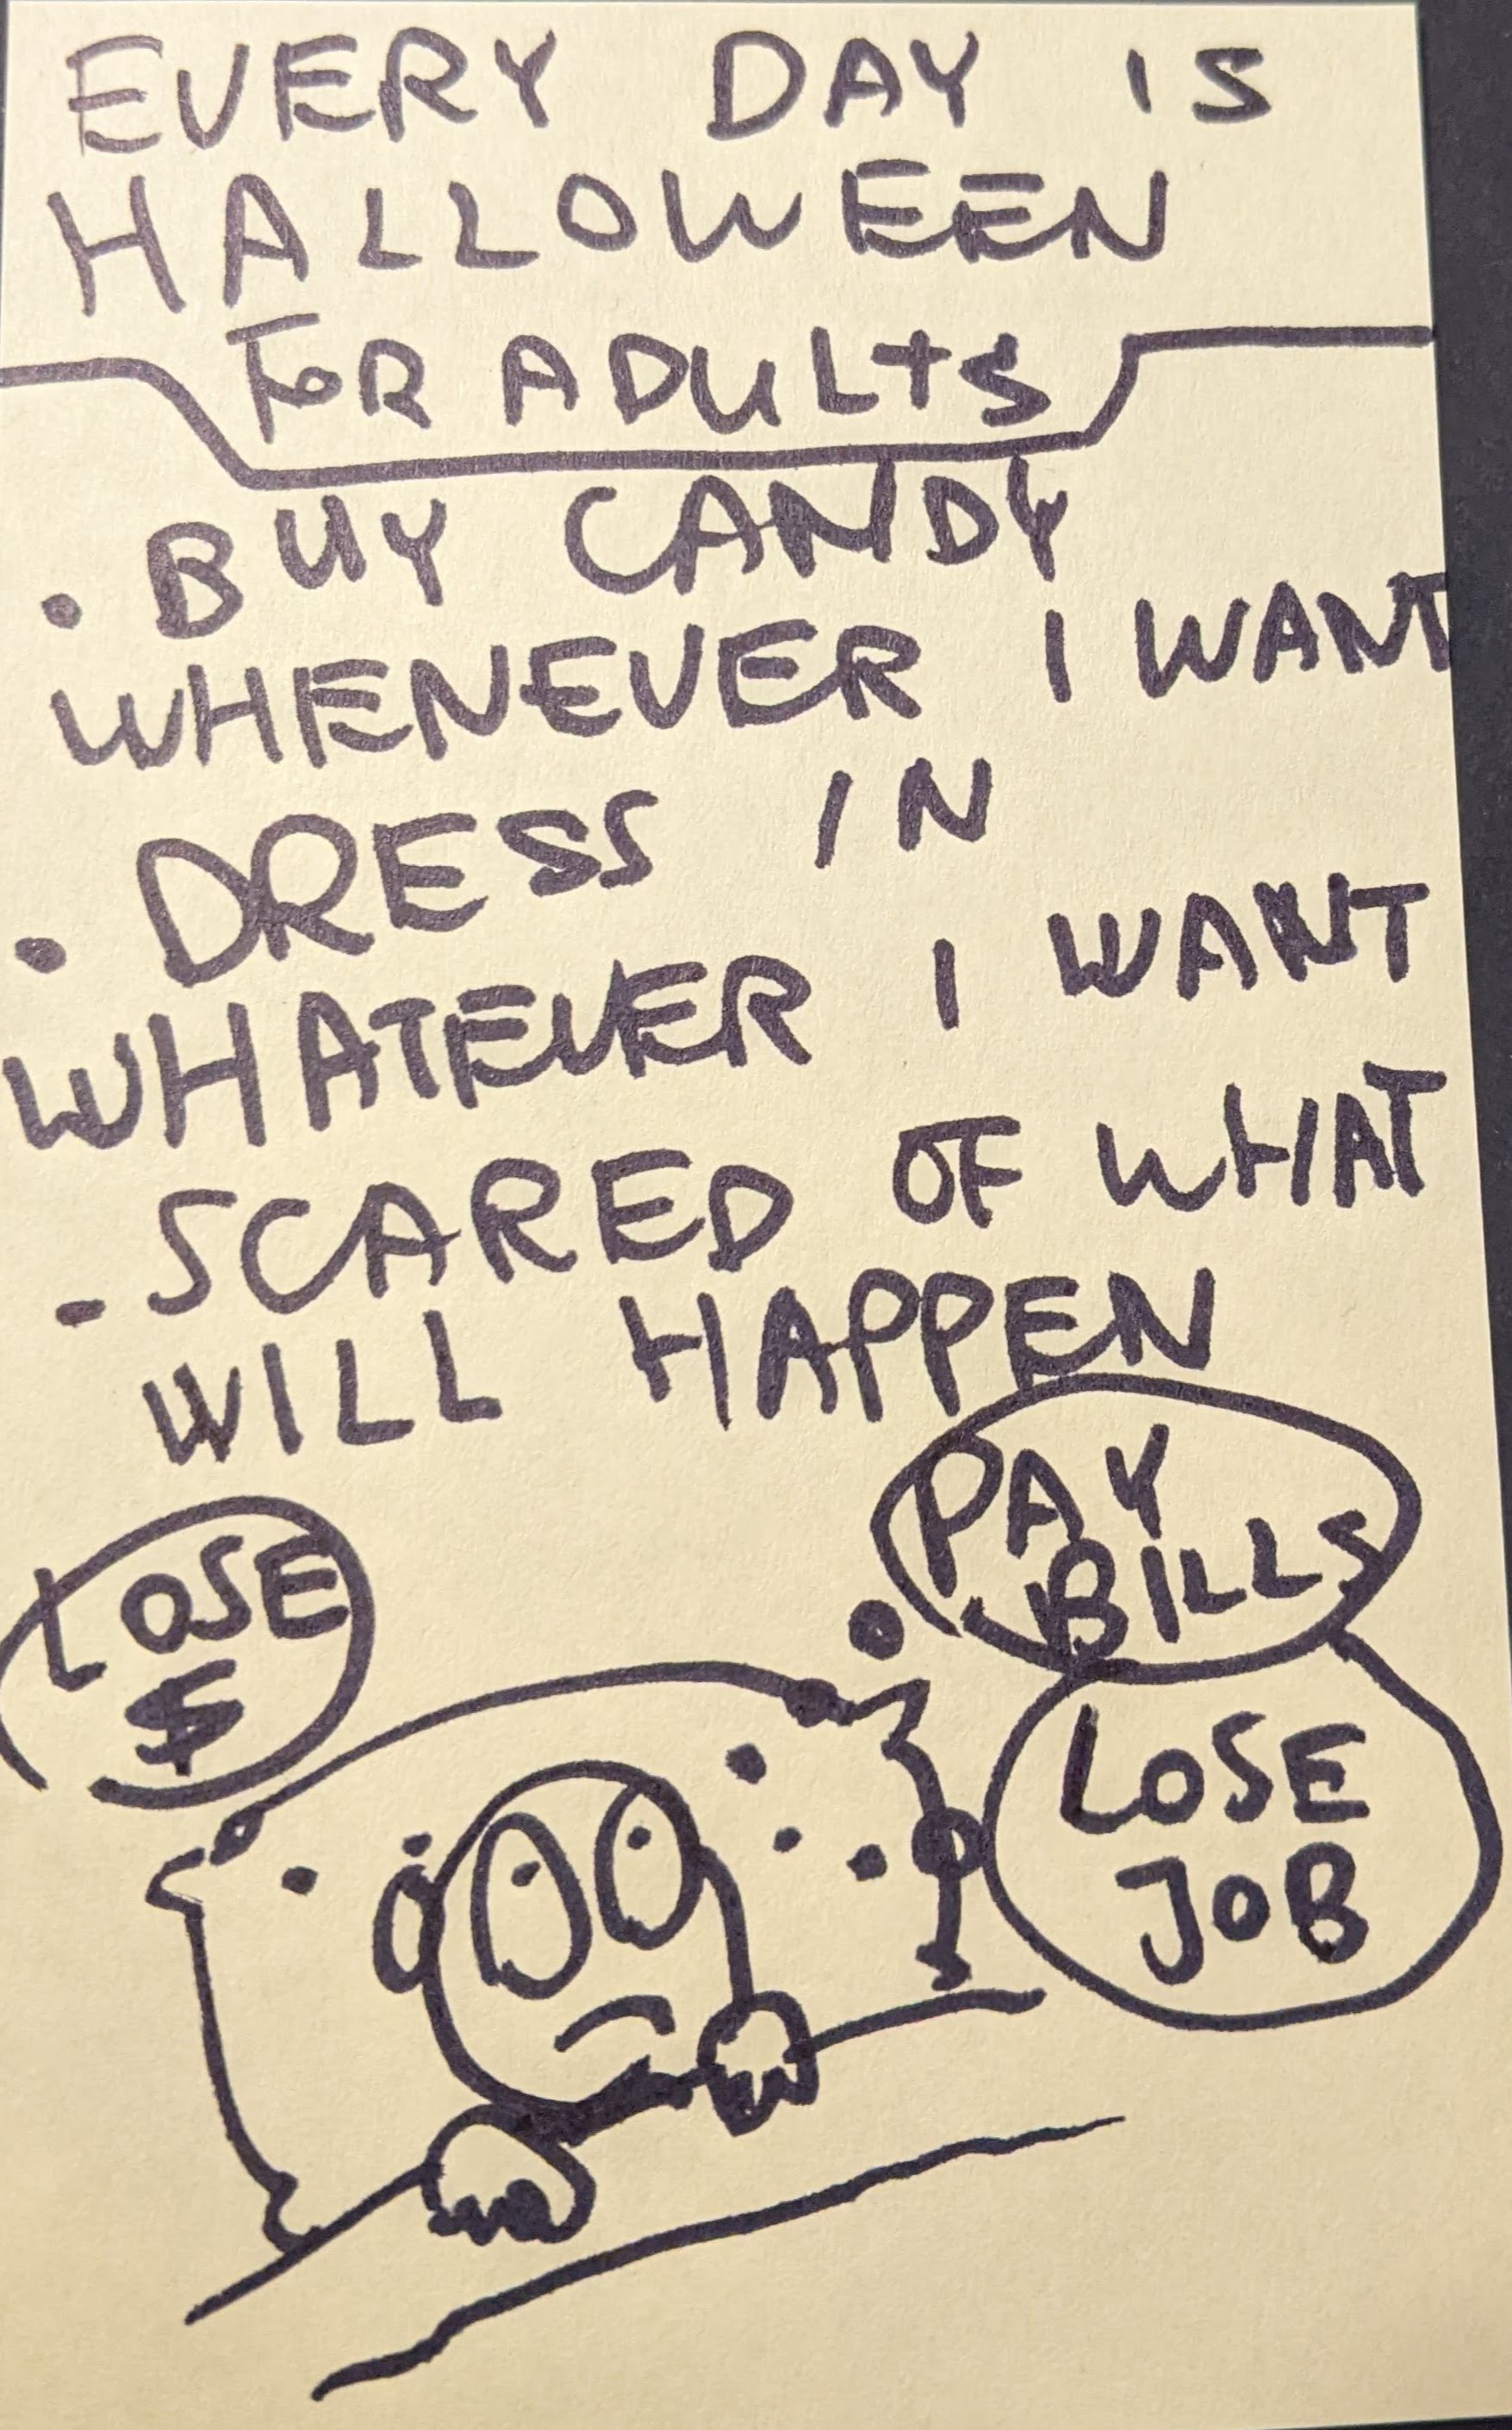 EVERY DAY IS
HALLOWEEN
FOR ADULTS
• BUY CANDY
WHENEVER I WANT
• DRESS IN
WHATEVER I WANT
- SCARED OF WHAT
WILL HAPPEN
PAY
BILLS
LOSE
$
LOSE
JOB